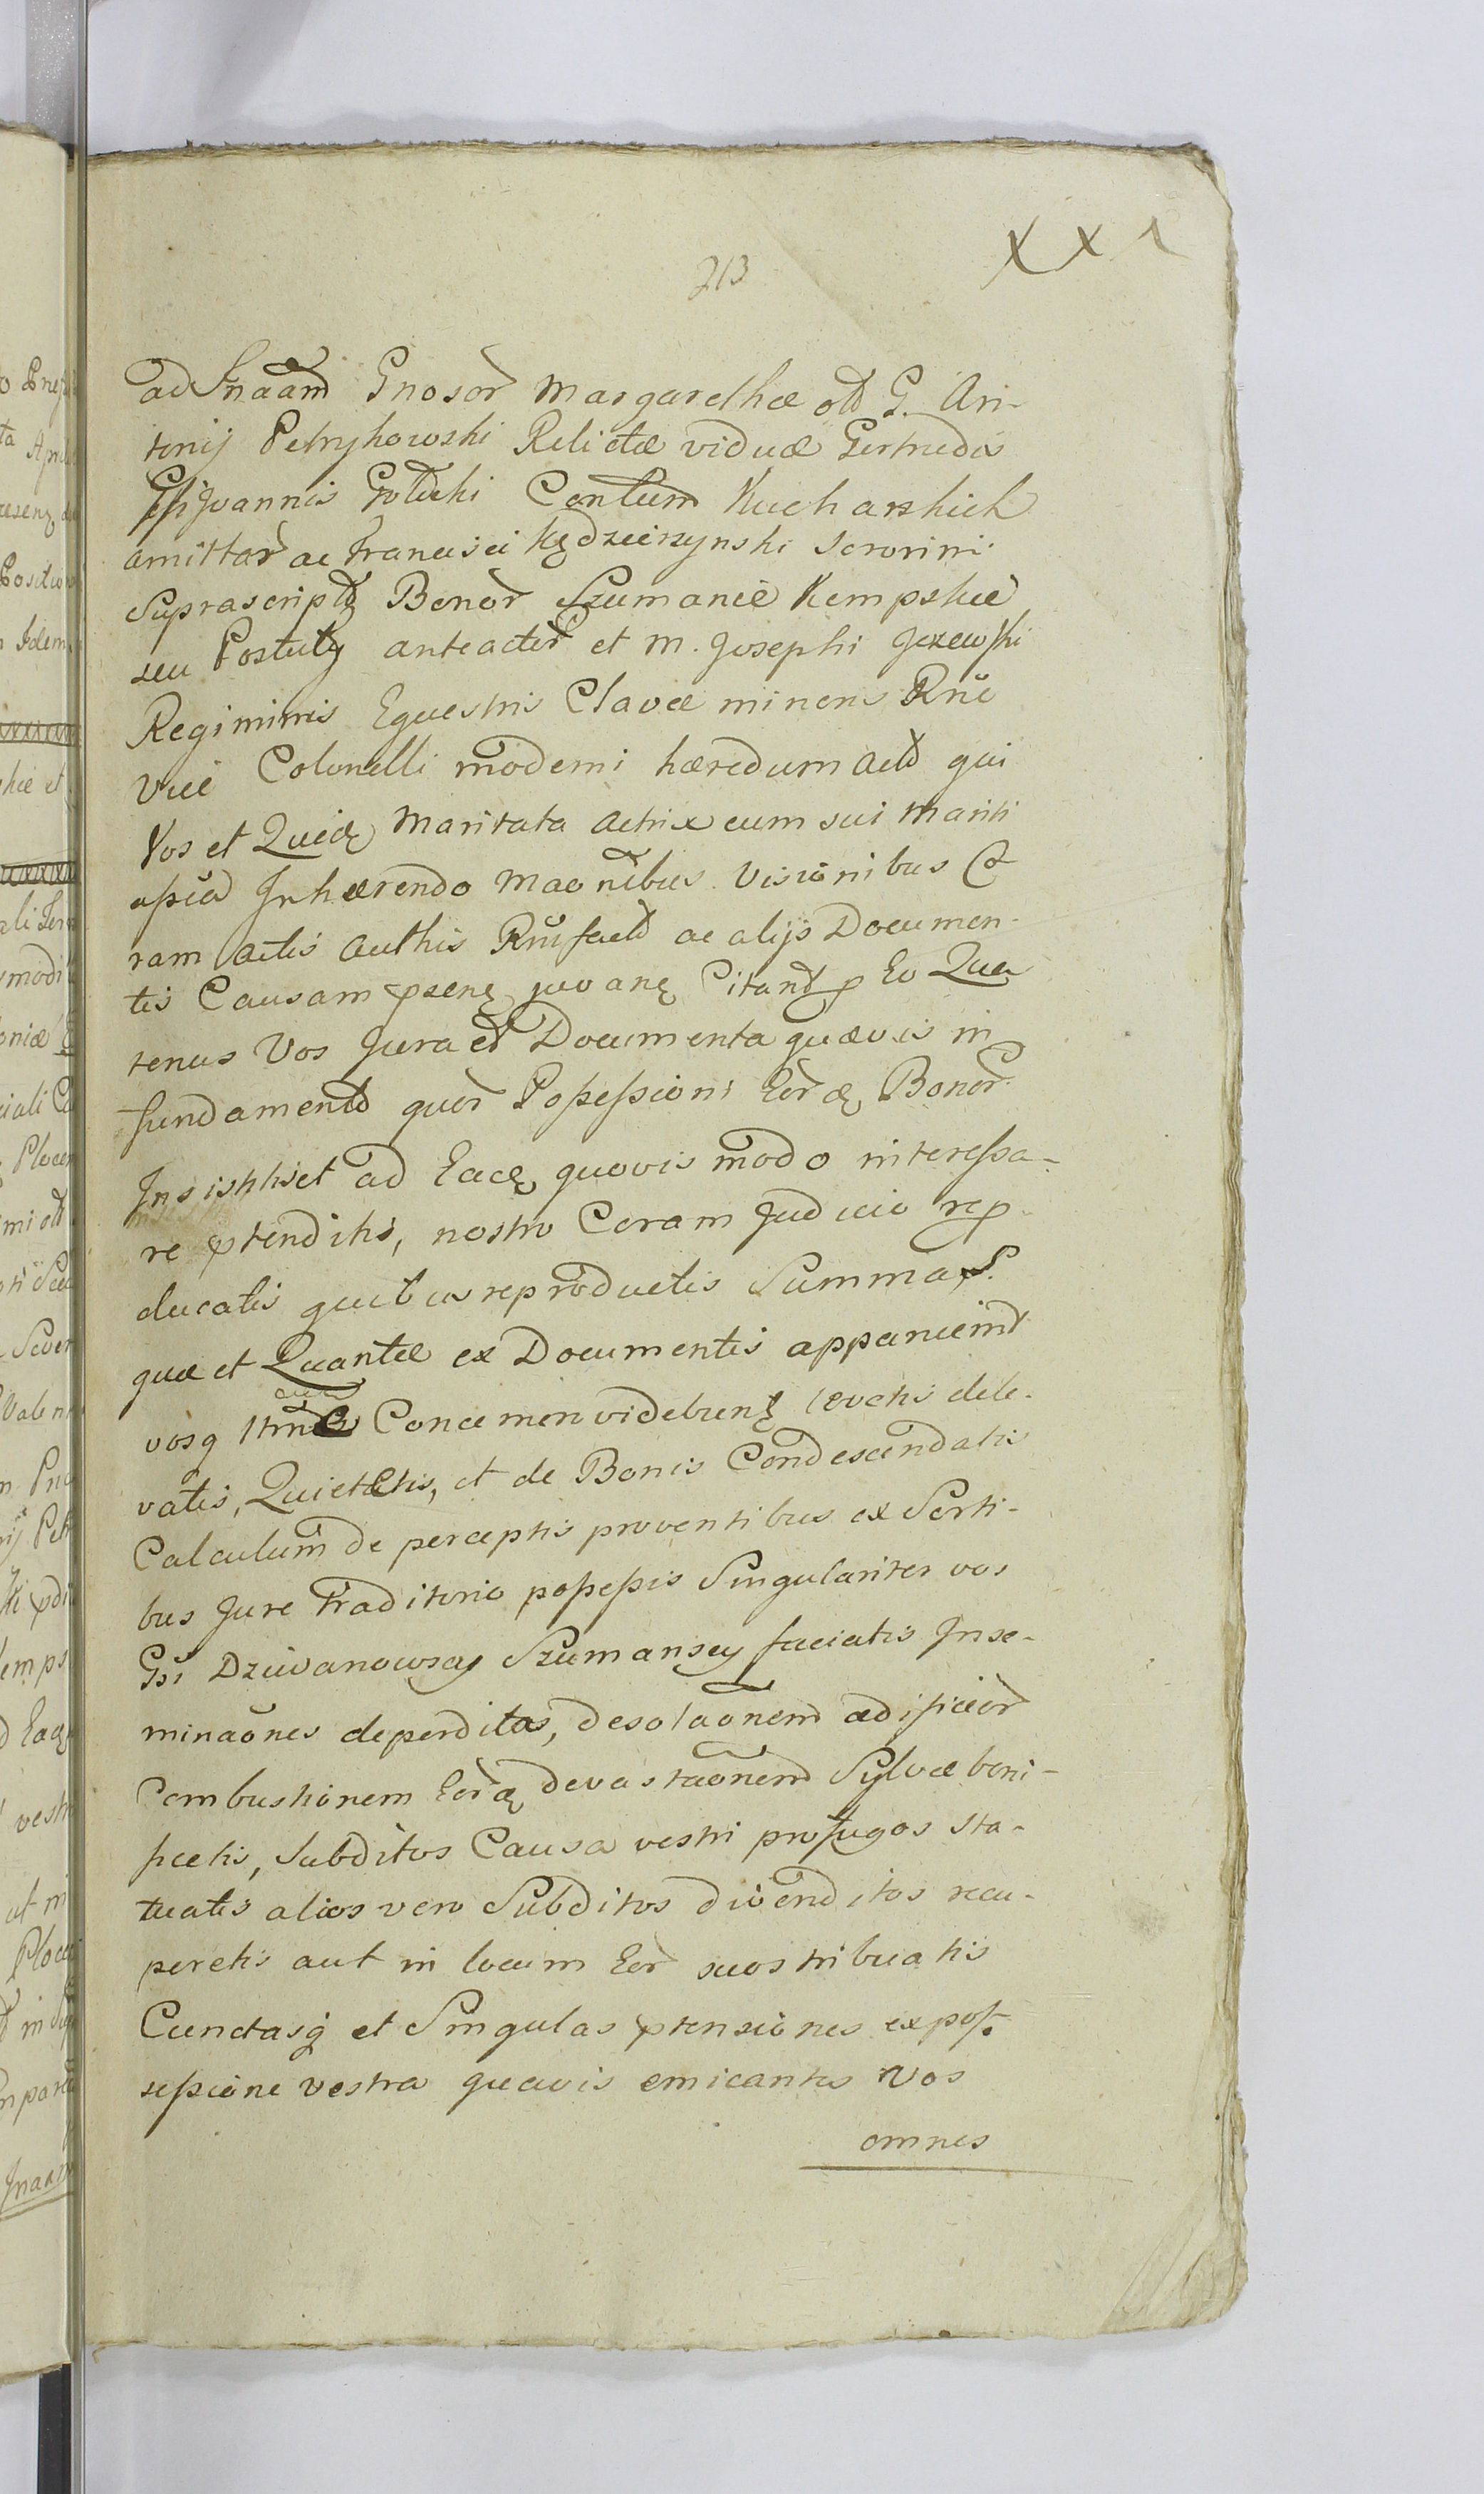 213
XX1
ad Jnaam Gnosor Margarethæ olt G. An-
tonij Petrykowski Relictæ viduæ Gertrudis
Gsi Joannis Golucki Contum Kucharskich
amittar ac Francisci Kędzierzynski Sororini
Suprascripty Bonor Szumanie Kempskie
seu Postuły anteacter et M. Josephi Jezewski
Regiminis Equestris Clavæ minens Rni
Vice Colonelli moderni hæredum actd qui
Vos et Queidę Maritata actrix cum sui Mariti
assia Inhærendo Maonibus. Visionibus C
ram Actis authis Rnifactd ac alijs Documen-
tis Causam pseng juvang Citand p Eo Qua
tenus Vos Jura et Documenta quævis in
fundamentd quor Possessioni Eorდę Bonor
Insistitis et ad Eadę quovis modo interessa-
re ptenditis, nostro Coram Judicio rep
ducatis quibus reproductis Summas
quæ et Quantæ ex Documentis apparueint
vosq Concernen videbung levetis dele-
vatis, Quietetis, et de Bonis Condescendatis
Calculum de perceptis proventibus ex Sorti-
bus Jure Traditorio possessis Singulariter vos
Gsi Dziewanowscy Szumanscy faciatis Inse-
minaones deperditas, desolaonem ædificior
Combustionem Eordę devastaonem Sylvæ boni-
ficetis, Subditos Causa vestri profugos sta-
tuatis alios vero Subditos divenditos recu-
peretis aut in locum Eor suos tribuatis
Cunctasq et Singulas ptensiones ex pos-
sessione vestra quavis emicantes Vos
omnes